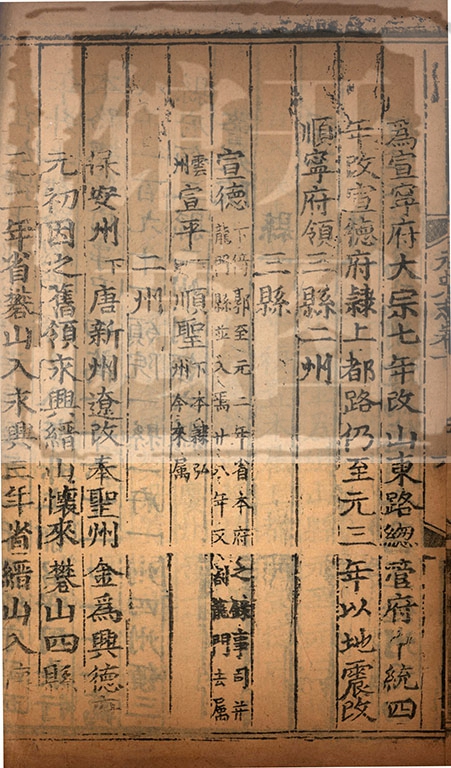 爲宣寧府大宗七年改山東路總管府中統四
年改宣德府隷上都路仍至元三年以地震改
順寧府領三縣二州
三縣
宣德下倚郭至元二年省本府之錄事司并
龍門縣並入焉廿八年又割龍門去属
雲州宣平下順聖下本隷弘州今來属
二州
保安州下唐新州遼改奉聖州金爲興德府
元初因之舊領永興縉山懷來礬山四縣
二年省礬山入永興三年省縉山入